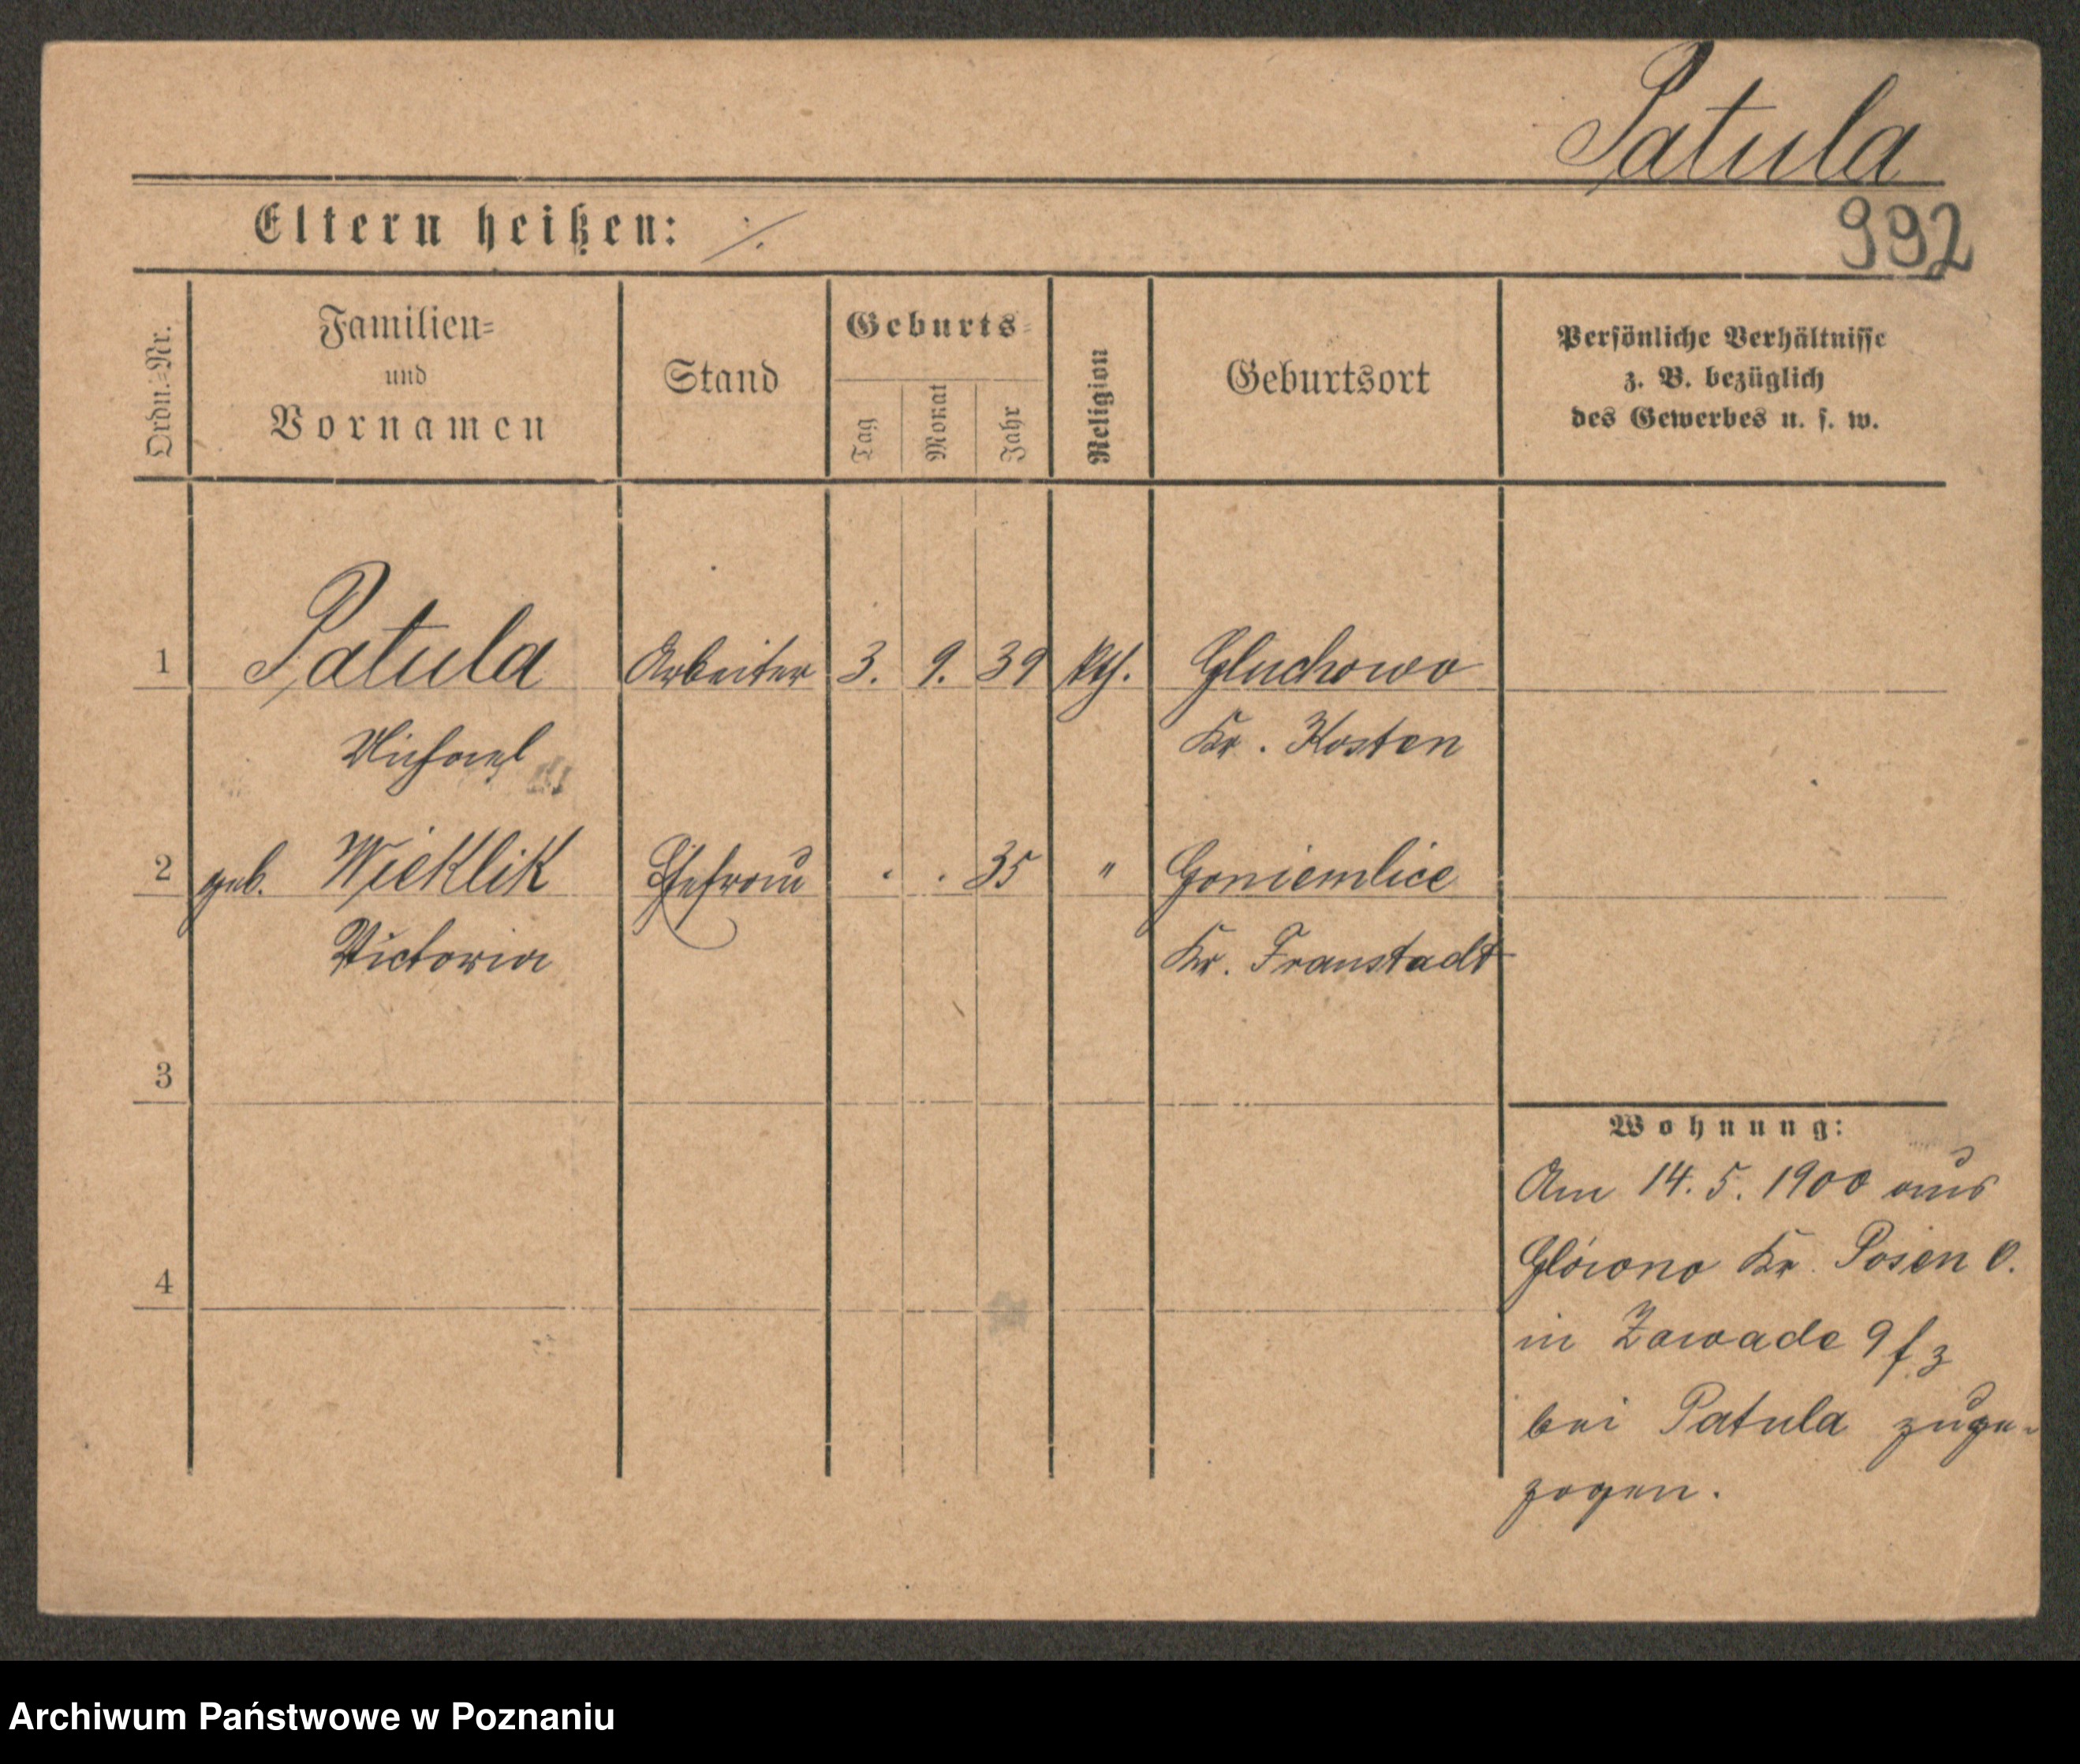 Patula
Eltern heißen: ·/.
992
Ordn.-Nr.
Familien-
und
Vornamen
Stand
Geburts-
Tag
Monat
Jahr
Religion
Geburtsort
Persönliche Verhältnisse
z. B. bezüglich
des Gewerbes u. s. w.
1 Patula Arbeiter 3. 9. 39 kth. Gluchowo
Michael Kr. Kosten
2 geb. Wieklik Ehefrau · · 35 " Goniemlice
Victoria Kr. Fraustadt
3
Wohnung:
Am 14. 5. 1900 aus
Glówno Kr. Posen O.
4
in Zawade 9
bei Patula zuge-
zogen.
Archiwum Państwowe w Poznaniu